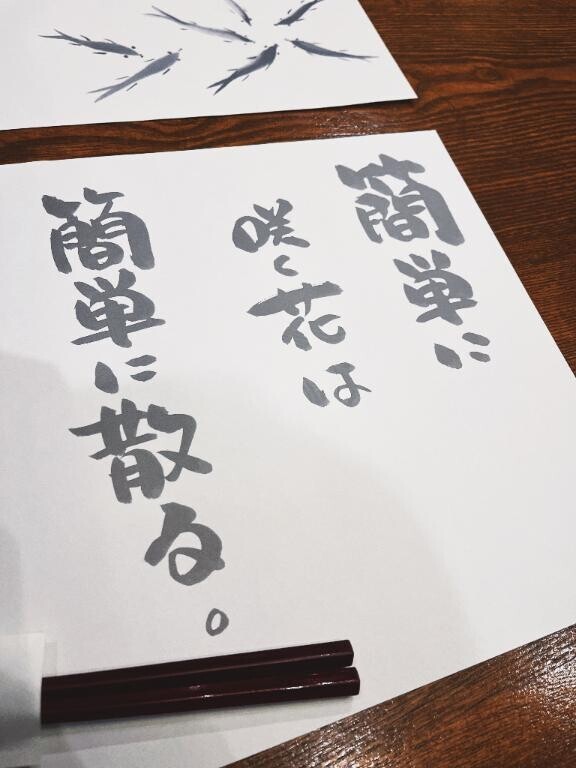 簡単に
咲く花は
簡単に散る。